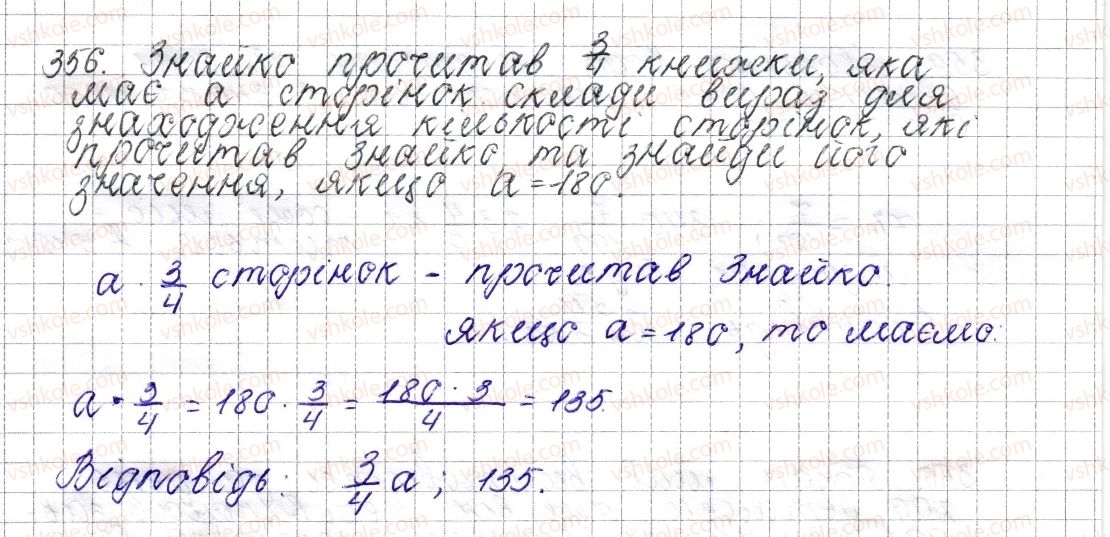 356. Знайко прочитав 3/4 книжки, яка
має a сторінок. Склади вираз для
знаходження кількості сторінок, які
прочитав Знайко, та знайди його
значення, якщо a = 180.
a 3/4 сторінок - прочитав Знайко.
якщо a = 180, то маємо:
a · 3/4 = 180 · 3/4 = 180 · 3/4 = 135.
Відповідь: 3/4 a; 135.